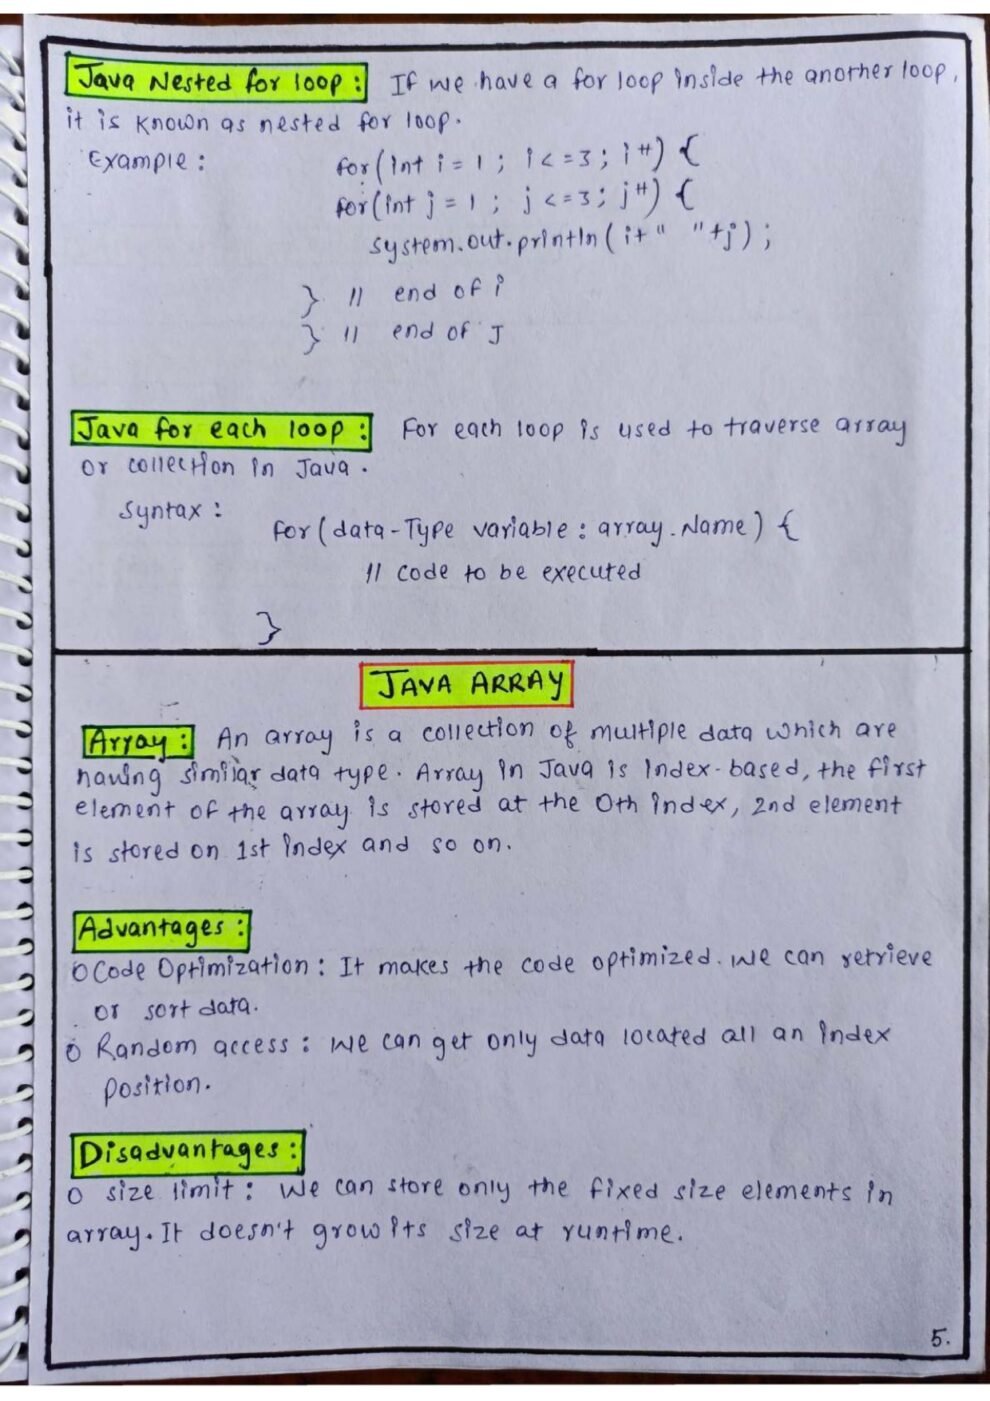 Java Nested for loop : If we have a for loop inside the another loop,
it is known as nested for loop.
Example : for(int i = 1 ; i <= 3 ; i++) {
for(int j = 1 ; j <= 3 ; j++) {
system.out.println( i+" "+j) ;
} // end of i
} // end of J
Java for each loop : For each loop is used to traverse array
or collection in Java .
Syntax :
for (data-Type variable : array.Name) {
// code to be executed
}
JAVA ARRAY
Array : An array is a collection of multiple data which are
having similar data type. Array in Java is index-based, the first
element of the array is stored at the 0th index, 2nd element
is stored on 1st index and so on.
Advantages :
o Code Optimization : It makes the code optimized. we can retrieve
or sort data.
o Random access : we can get only data located all an index
position.
Disadvantages :
o size limit : we can store only the fixed size elements in
array. It doesn't grow its size at runtime.
5.